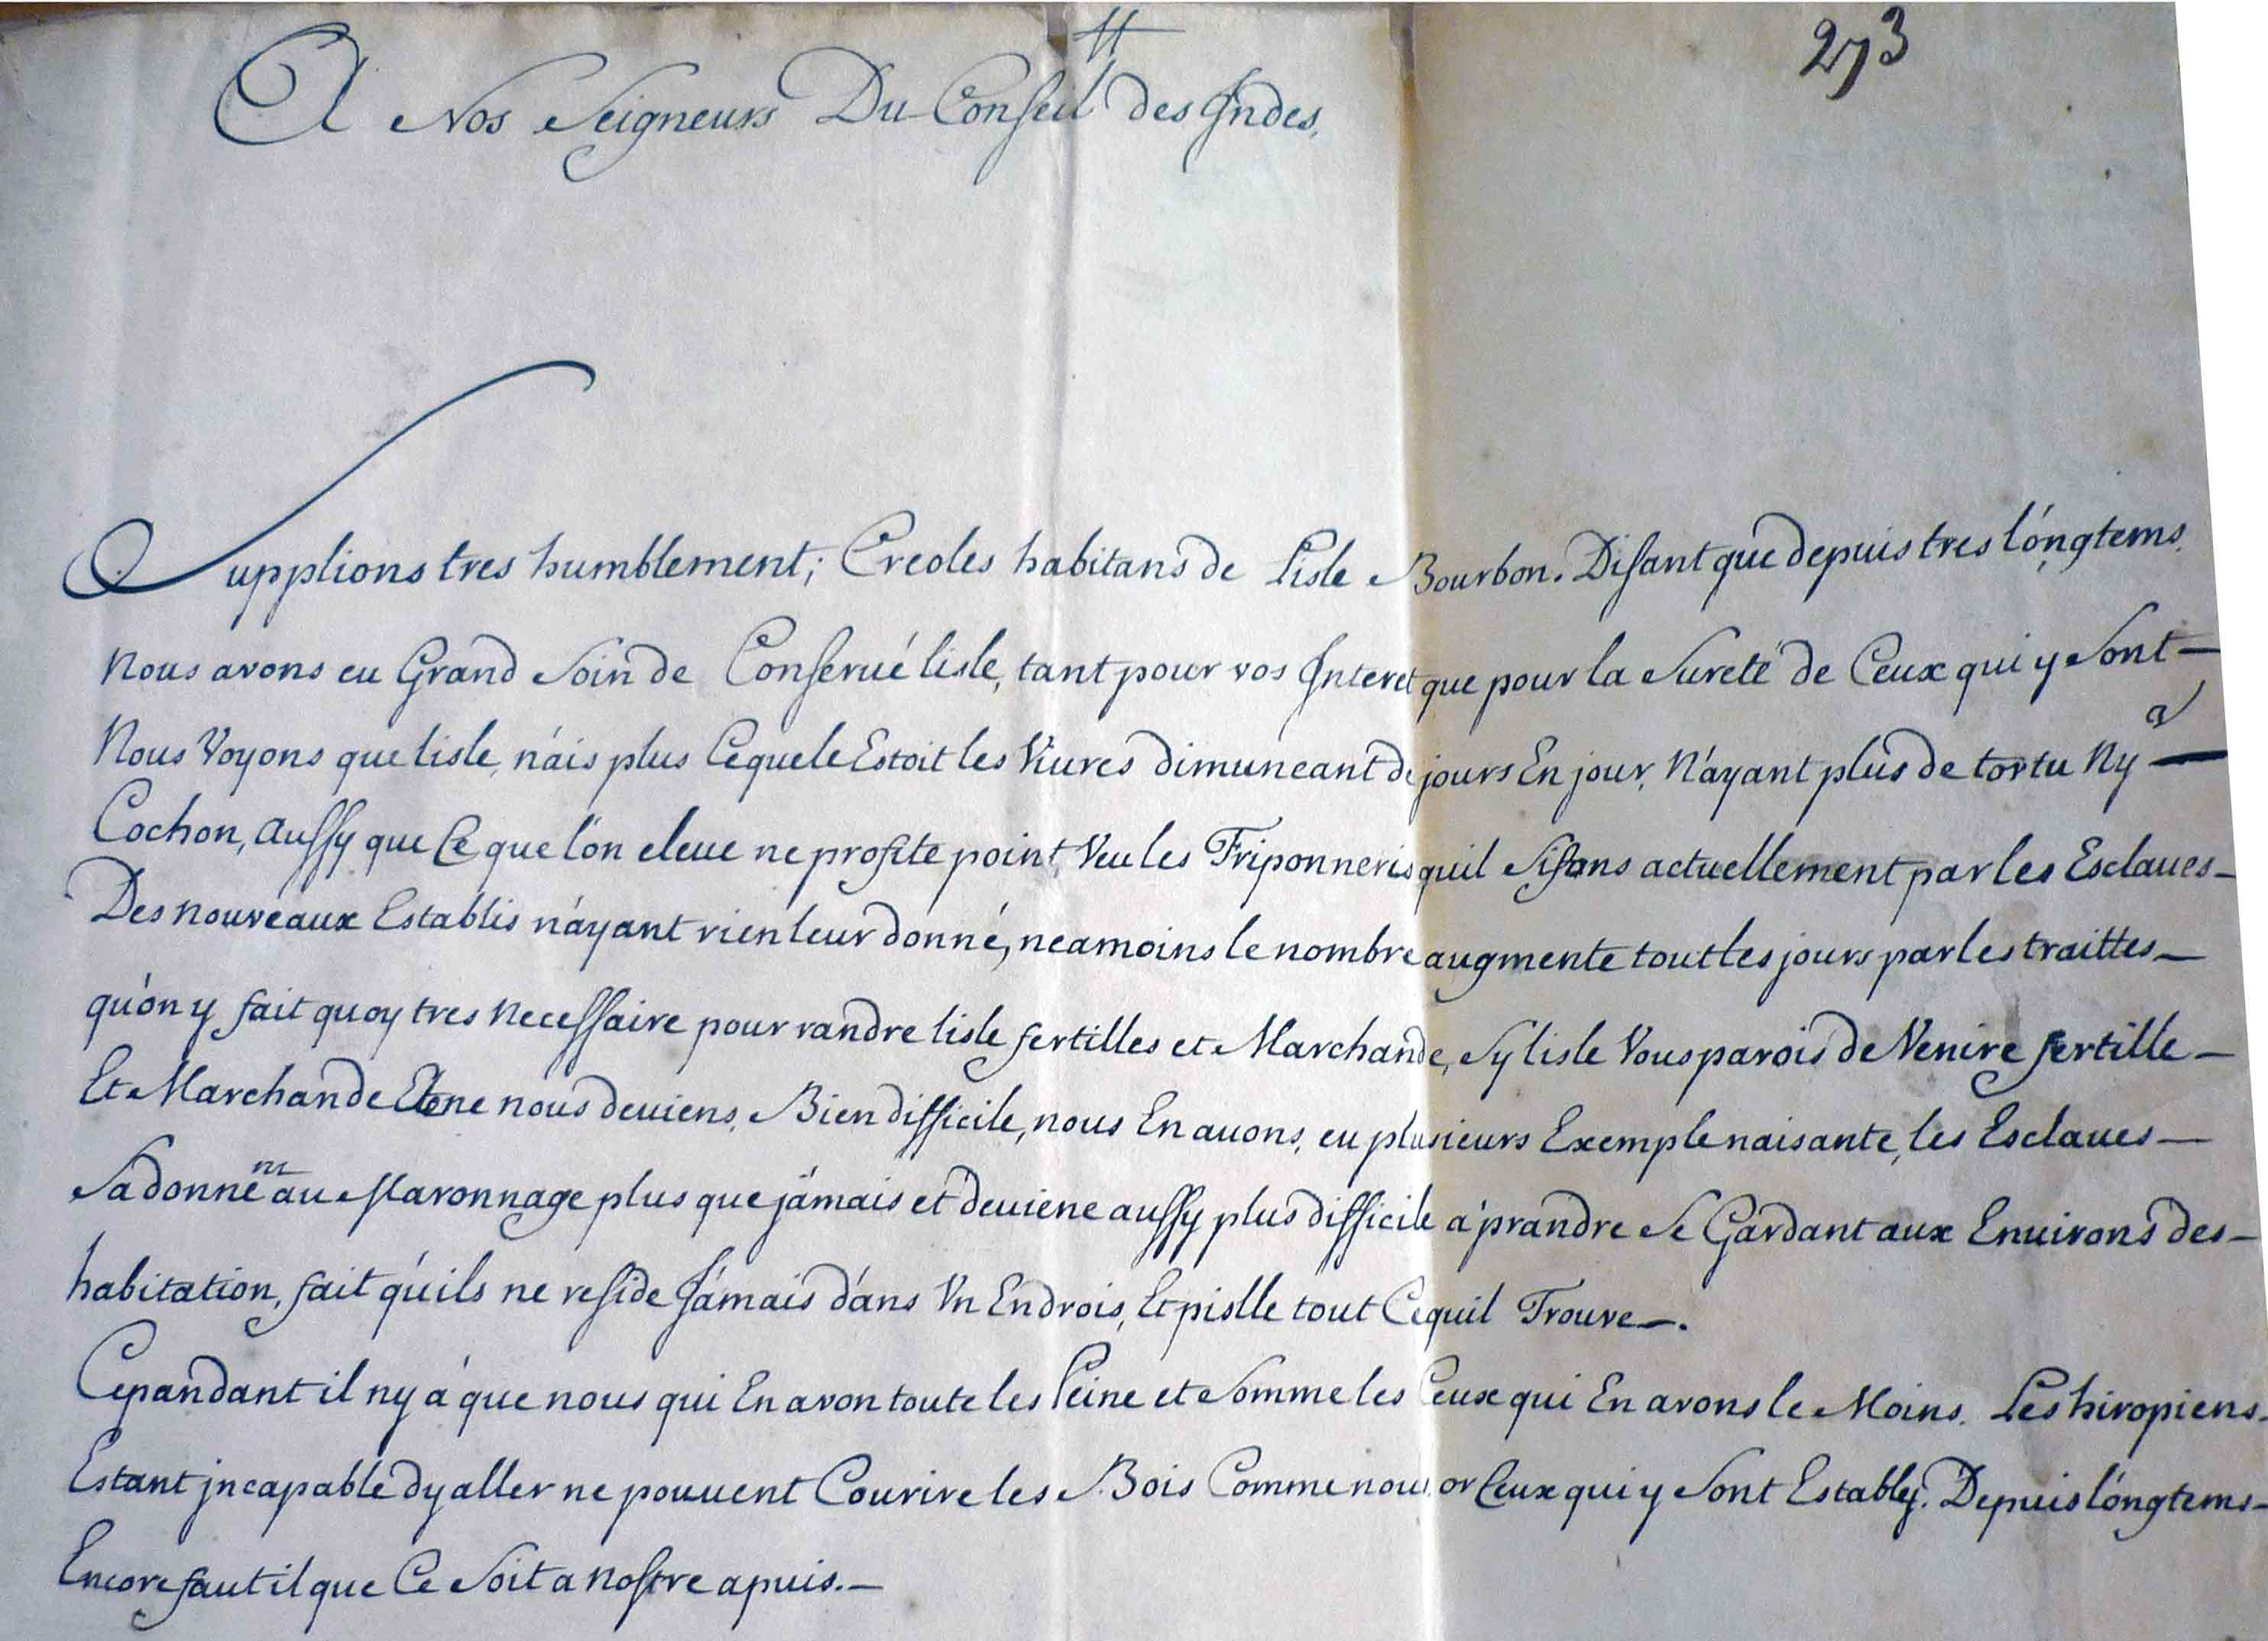 273
A Nos Seigneurs Du Conseil des Indes,
Supplions tres humblement; Creoles habitans de Lisle Bourbon. Disant que depuis tres lóngtems.
Nous avons eu Grand Soin de Conserué lisle, tant pour vos Interet que pour la Sureté de Ceux qui y Sont —
Nous Voyons que lisle, náis plus Cequele Estoit les Viures dimuneant de jours En jour, Náyant plus de tortu Ny —
Cochon, aussy que Ce que lón eleue ne profite point, Veu les Friponneris quil Sifons actuellement par les Esclaues —
Des nouveaux Establis náyant rien leur donné, neamoins le nombre augmente toutles jours par les traittes —
quón y fait quoy tres necessaire pour randre lisle fertilles et Marchande, Sy lisle Vous parois de Venire fertille —
Et Marchande Elene nous deuiens, Bien difficile, nous En auons, eu plusieurs Exemple naisante, les Esclaues —
Sádonne nt au Maronnage plus que jámais et deuiene aussy plus difficile a prandre Se Gardant aux Enuirons des —
habitation, fait quíls ne reside Jámais dáns Vn Endrois, Et pislle tout Cequil Trouve —.
Cepandant il ny á que nous qui En avon toute les Peine et Somme les Ceux qui En avons le Moins. Les hiropiens —
Estant jncapable dy aller ne pouuent Courire les Bois Comme nous, or Ceux qui y Sont Estably. Depuis lóngtems —
Encore faut il que Ce Soit a nostre apuis. —